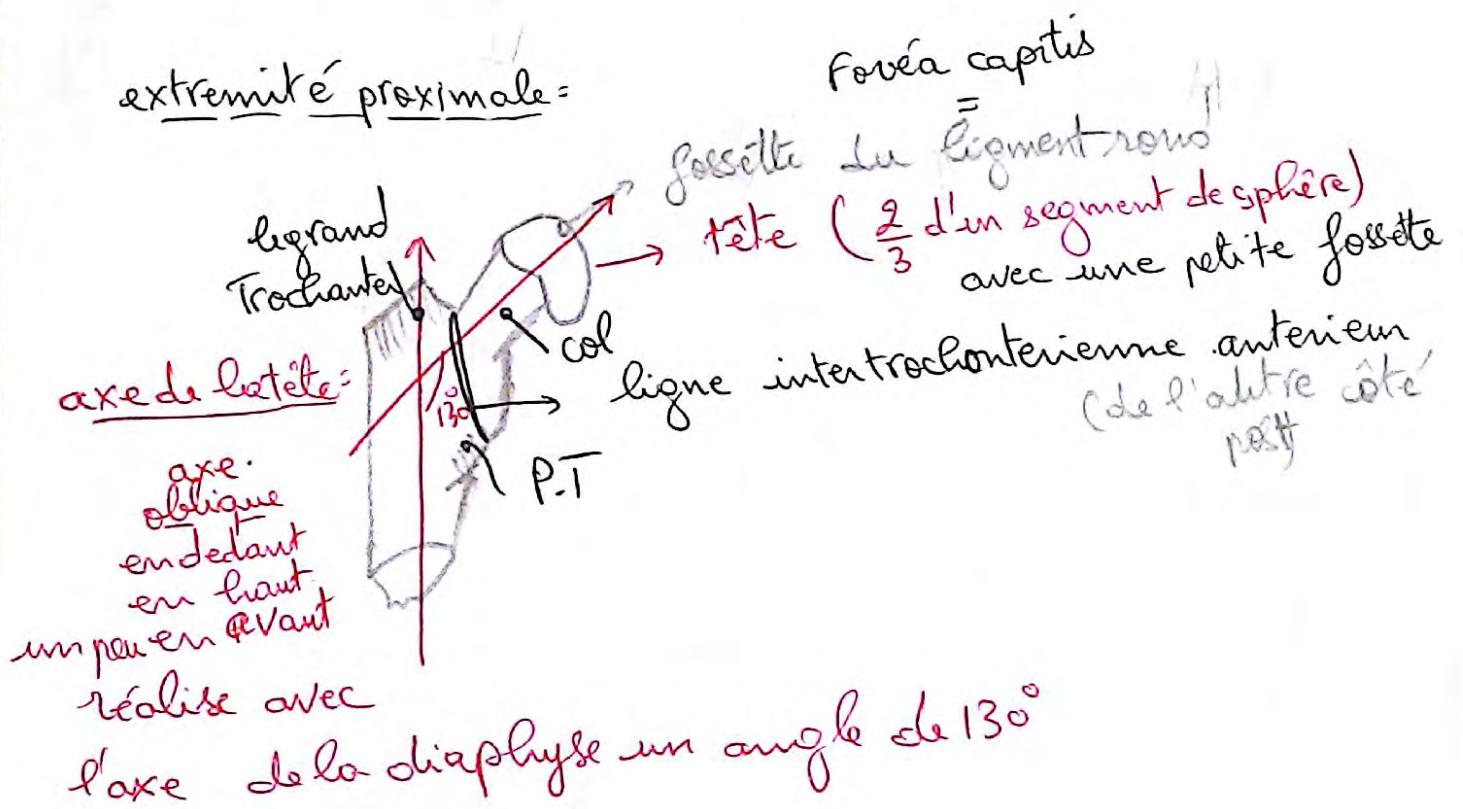 extremité proximale =
Fovéa capitis
=
fossette du ligment rond
le grand
Trochanter
tête (2/3 d'un segment de sphère)
avec une petite fossette
col
axe de la tête =
ligne intertrochanterienne anterieur
(de l'autre côté
post)
130°
P.T
axe.
oblique
en dedant
en haut
un peu en avant
réalise avec
l'axe de la diaphyse un angle de 130°